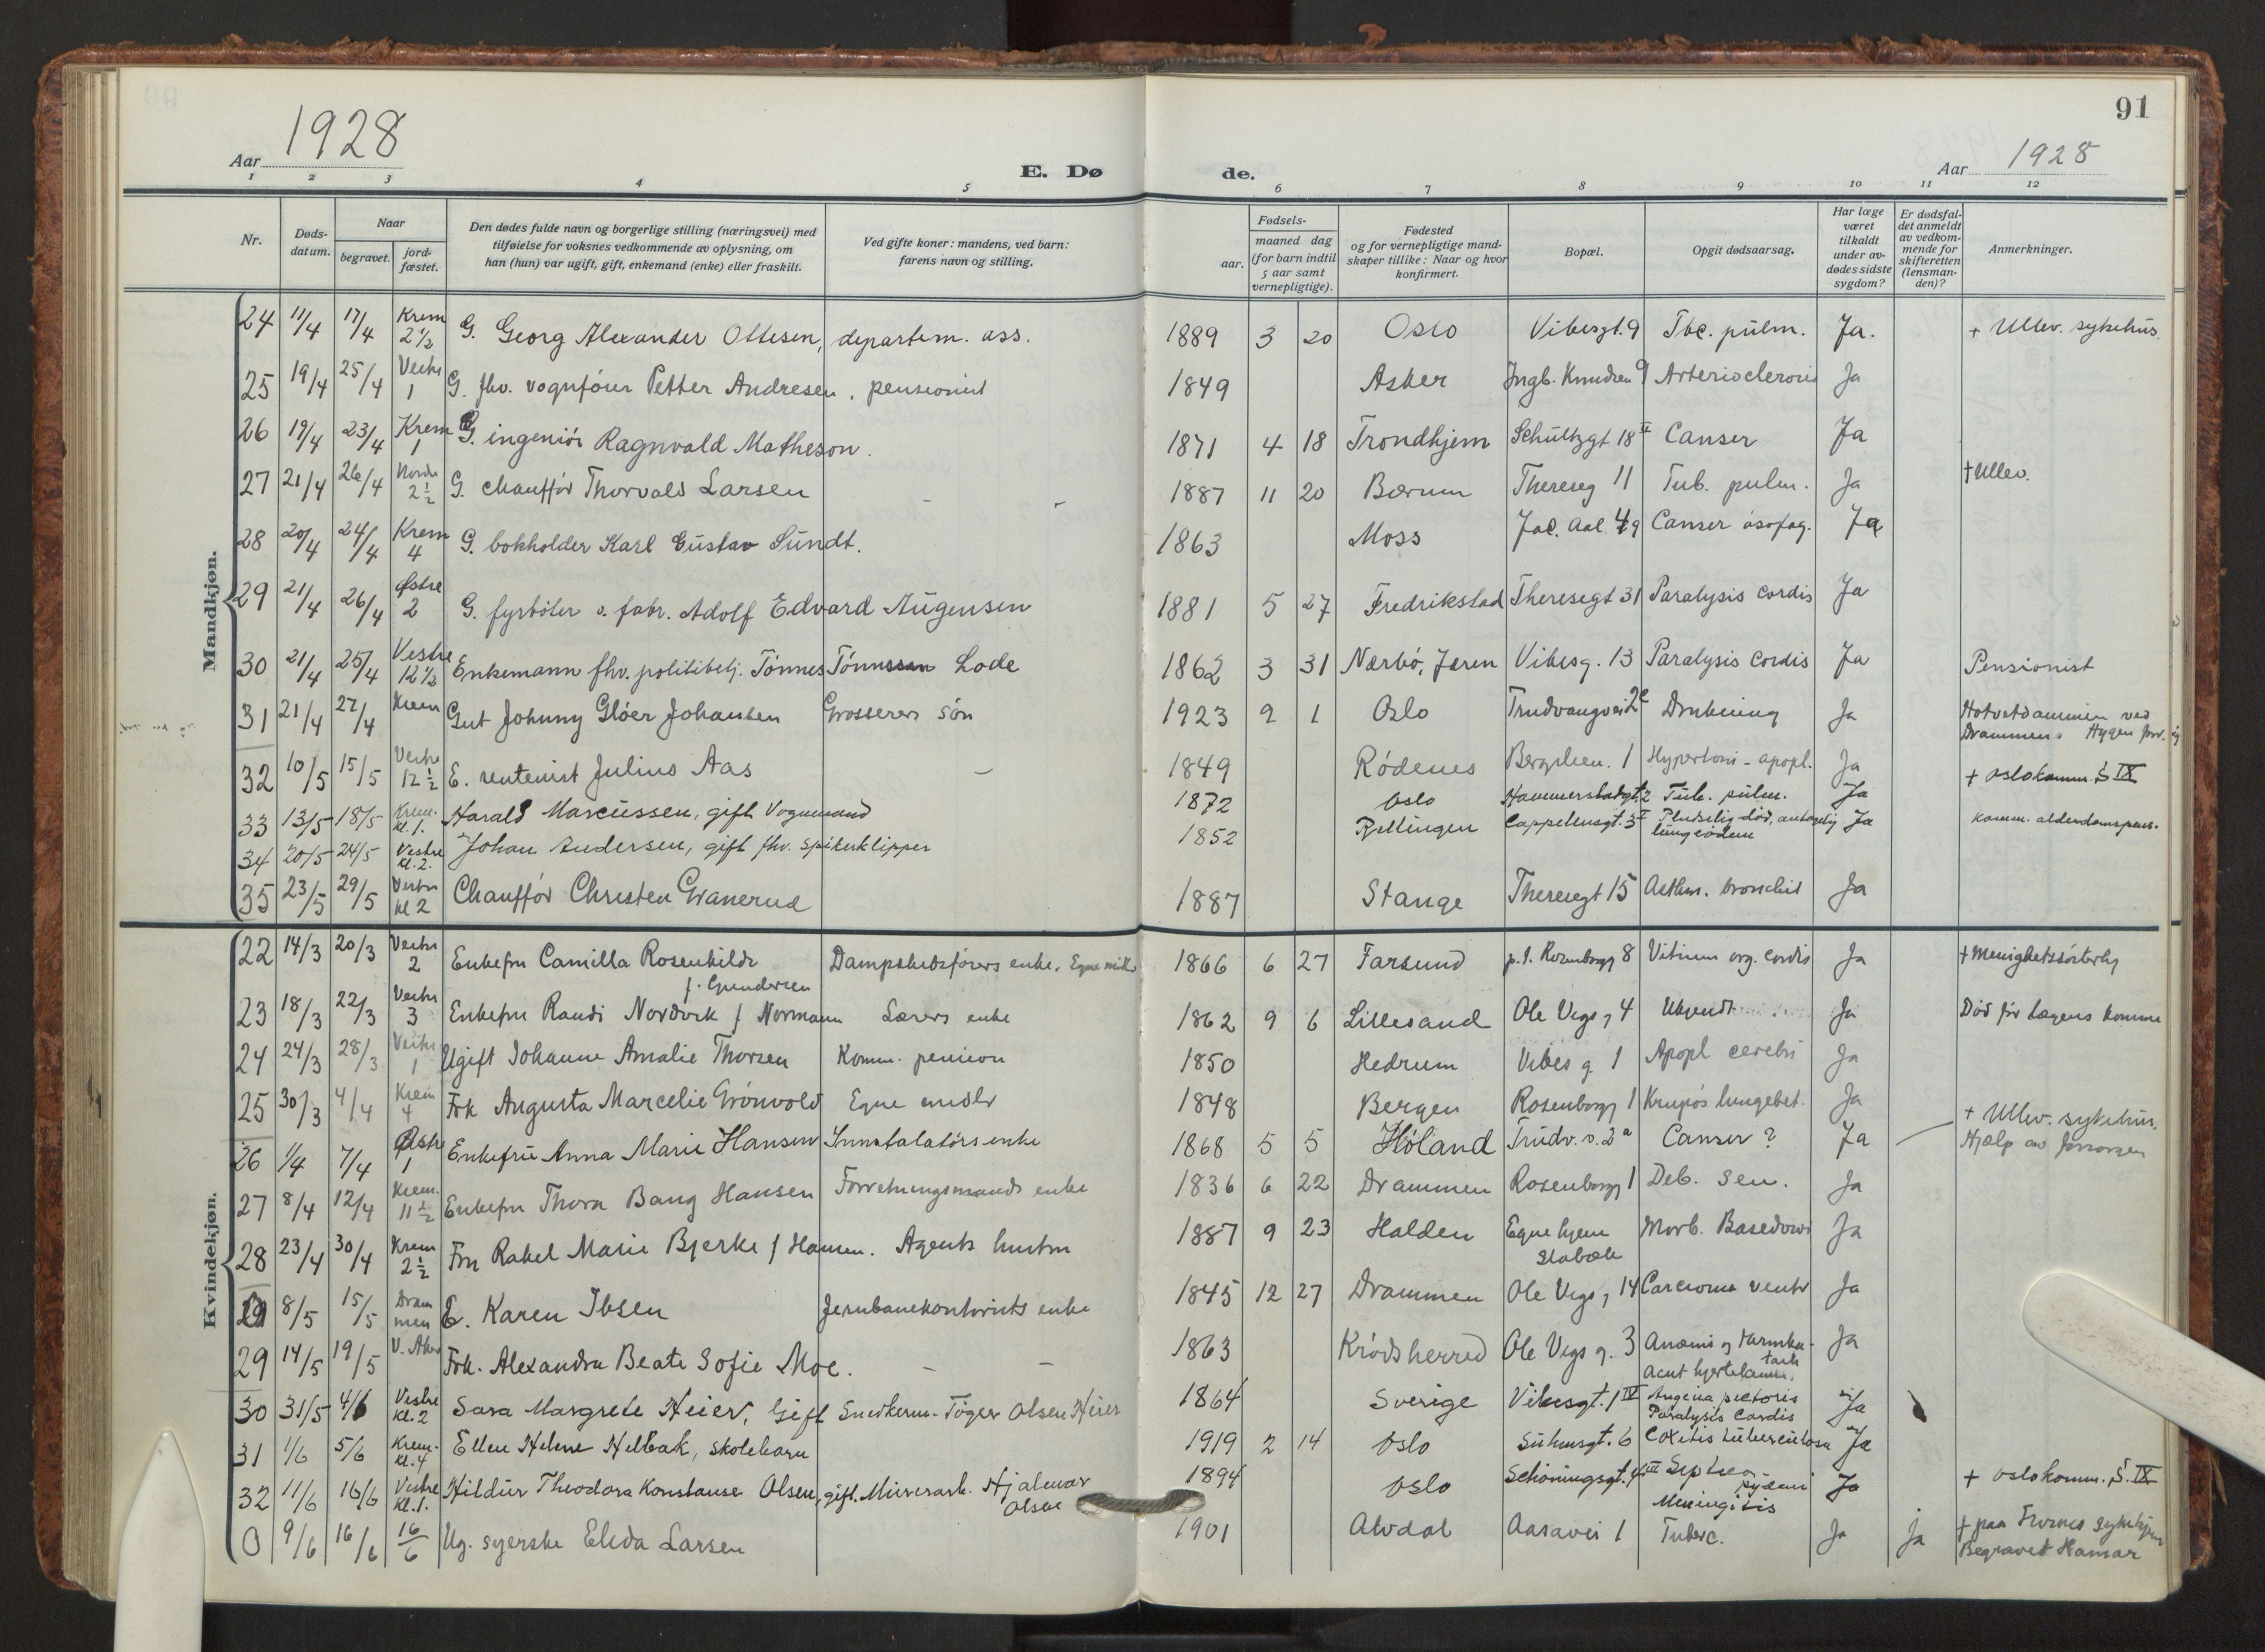 91
Aar 1928
E. Dø
de.
Aar 1928
1 2 3 4 5 6 7 8 9 10 11 12
Nr.
Døds-
datum.
Naar
begravet.
jord-
fæstet.
Den dødes fulde navn og borgerlige stilling (næringsvei) med
tilføielse for voksnes vedkommende av oplysning, om
han (hun) var ugift, gift, enkemand (enke) eller fraskilt.
Ved gifte koner: mandens, ved barn:
farens navn og stilling.
Fødsels-
aar.
maaned dag
(for barn indtil
5 aar samt
vernepligtige).
Fødested
og for vernepligtige mand-
skaper tillike: Naar og hvor
konfirmert.
Bopæl.
Opgit dødsaarsag.
Har læge
været
tilkaldt
under av-
dødes sidste
sygdom?
Er dødsfal-
det anmeldt
av vedkom-
mende for
skifteretten
(lensman-
den)?
Anmerkninger.
Mandkjøn.
24 11/4 17/4 Krem 2 1/2 G. Georg Alexander Ottesen, departem. ass. 1889 3 20 Oslo Vibesgt. 9 Tbc. pulm. Ja. + Ullev. sykehus.
25 19/4 25/4 Vestre 1 G. fhv. vognfører Petter Andresen, pensionist 1849 Asker Ingb. Knudsen 9 Arteriosclerosis Ja
26 19/4 23/4 Krem 1 G. ingeniør Ragnvald Matheson. 1871 4 18 Trondhjem Schultzgt 18 II Canser Ja
27 21/4 26/4 Nordre 2 1/2 G. chauffør Thorvald Larsen - - 1887 11 20 Bærum Thereseg 11 Tub. pulm. Ja + Ullev.
28 20/4 24/4 Krem 4 G. bokholder Karl Gustav Sundt. 1863 Moss Jac. Aal 49 Canser øsofag. Ja
29 21/4 26/4 Østre 2 G. fyrbøter v. fabr. Adolf Edvard Augensen 1881 5 27 Fredrikstad Theresegt 31 Paralysis cordis Ja
30 21/4 25/4 Vestre 12 1/2 Enkemann fhv. politibetj. Tønnes Tønnssen Lode 1862 3 31 Nærbø, Jæren Vibesg. 13 Paralysis cordis Ja Pensionist
31 21/4 27/4 Krem Gut Johnny Gløer Johansen Grosserers søn 1923 9 1 Oslo Trudvangvei 2c Drukning Ja Hotvetdammen ved
Drammen.
32 10/5 15/5 Vestre 12 1/2 E. rentenist Julius Aas - 1849 Rødenes Bergslien. 1 Hypertoni - apopl. Ja + Oslo komm. S IX
33 13/5 18/5 Krem. kl. 1. Harald Marcussen, gift Vognmand 1872 Oslo Hammerstadgt. 2 Tub. pulm. Ja
34 20/5 24/5 Vestre kl. 2. Johan Andersen, gift fhv. spikerklipper 1852 Rellingen Cappelensgt. 3 I Pludselig død, antagelig Ja komm. alderdomspens.
lungeødem
35 23/5 29/5 Vestre kl 2 Chauffør Christen Granerud 1887 Stange Theresegt 15 Asthm. bronchit Ja
Kvindekjøn.
22 14/3 20/3 Vestre 2 Enkefru Camilla Rosenkilde Dampskibsførers enke. Egne midler 1866 6 27 Farsund p.t. Rosenborgg 8 Vitium org. cordis Ja + Menighetssøsterhj
f. Gundersen
23 18/3 22/3 Vestre 3 Enkefru Randi Nordvik f Normann Lærers enke 1862 9 6 Lillesand Ole Vigs g 4 Ukjendt Ja Død før lægens komme
24 24/3 28/3 Vestre 1 Ugift Johanne Amalie Thorsen Komm. pension 1850 Hedrum Vibes g. 1 Apopl cerebri Ja
25 30/3 4/4 Krem 4 Frk Augusta Marcelie Grønvold Egne midler 1848 Bergen Rosenborgg 1 Krupøs lungebet. Ja
26 1/4 7/4 Østre 1 Enkefru Anna Marie Hansen Innstalatørs enke 1868 5 5 Høland Trudv. v. 2a Canser ? Ja + Ullev. sykehus.
Hjælp av forsorgen
27 8/4 12/4 Krem. 11 1/2 Enkefru Thora Bang Hansen Forretningsmands enke 1836 6 22 Drammen Rosenborgg 1 Deb. sen. Ja
28 23/4 30/4 Krem 2 1/2 Fru Rakel Marie Bjerke f Hansen. Agents hustru 1887 9 23 Halden Egne hjem Morb. Basedowi Ja
Stabæk
8/5 15/5 Drammen E. Karen Ibsen Jernbanekontorists enke 1845 12 27 Drammen Ole Vigs g 14 Carcioma ventr Ja
29 14/5 19/5 V. Aker Frk. Alexandra Beate Sofie Moe. - - 1863 Krødsherred Ole Vigs g. 3 Anæmi og tarmka- Ja
tarh
Acut hjertelamm.
30 31/5 4/6 Vestre kl. 2 Sara Margrete Heier, Gift Snedkerm. Tøger Olsen Heier 1864 Sverige Vibesgt. 1 IV Angina pectoris Ja
Paralysis Cordis
31 1/6 5/6 Krem. kl. 4 Ellen Helene Helbak, skolebarn 1919 2 14 Oslo Suhmsgt. 6 Coxitis tuberculosa Ja
32 11/6 16/6 Vestre kl. 1. Hildur Theodora Konstanse Olsen, gift. Murerarb. Hjalmar 1894 Oslo Schøningsgt. 4 III Ja + Oslo komm. S. IX
Olsen Meningitis
0 9/6 16/6 16/6 Ug. syerske Elida Larsen 1901 Alvdal Aasavei 1 Tuberc. Ja Ja + paa Furnes sykehjem
Begravet Hamar